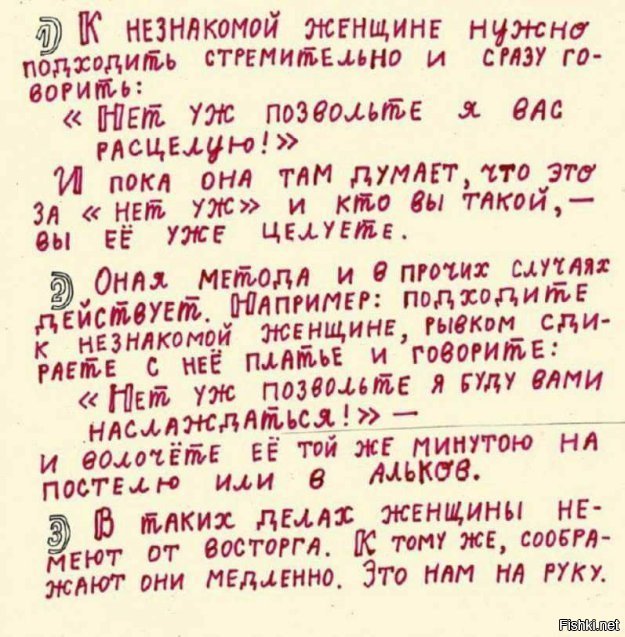 1) К НЕЗНАКОМОЙ ЖЕНЩИНЕ НУЖНО
ПОДХОДИТЬ СТРЕМИТЕЛЬНО И СРАЗУ ГО-
ВОРИТЬ:
« НЕТ УЖ ПОЗВОЛЬТЕ Я ВАС
РАСЦЕЛУЮ!»
И ПОКА ОНА ТАМ ДУМАЕТ, ЧТО ЭТО
ЗА « НЕТ УЖ» И КТО ВЫ ТАКОЙ, —
ВЫ ЕЁ УЖЕ ЦЕЛУЕТЕ.
2) ОНАЯ МЕТОДА И В ПРОЧИХ СЛУЧАЯХ
ДЕЙСТВУЕТ. НАПРИМЕР: ПОДХОДИТЕ
К НЕЗНАКОМОЙ ЖЕНЩИНЕ, РЫВКОМ СДИ-
РАЕТЕ С НЕЁ ПЛАТЬЕ И ГОВОРИТЕ:
« НЕТ УЖ ПОЗВОЛЬТЕ Я БУДУ ВАМИ
НАСЛАЖДАТЬСЯ!» —
И ВОЛОЧЁТЕ ЕЁ ТОЙ ЖЕ МИНУТОЮ НА
ПОСТЕЛЮ ИЛИ В АЛЬКОВ.
3) В ТАКИХ ДЕЛАХ ЖЕНЩИНЫ НЕ-
МЕЮТ ОТ ВОСТОРГА. К ТОМУ ЖЕ, СООБРА-
ЖАЮТ ОНИ МЕДЛЕННО. ЭТО НАМ НА РУКУ.
Fishki.net